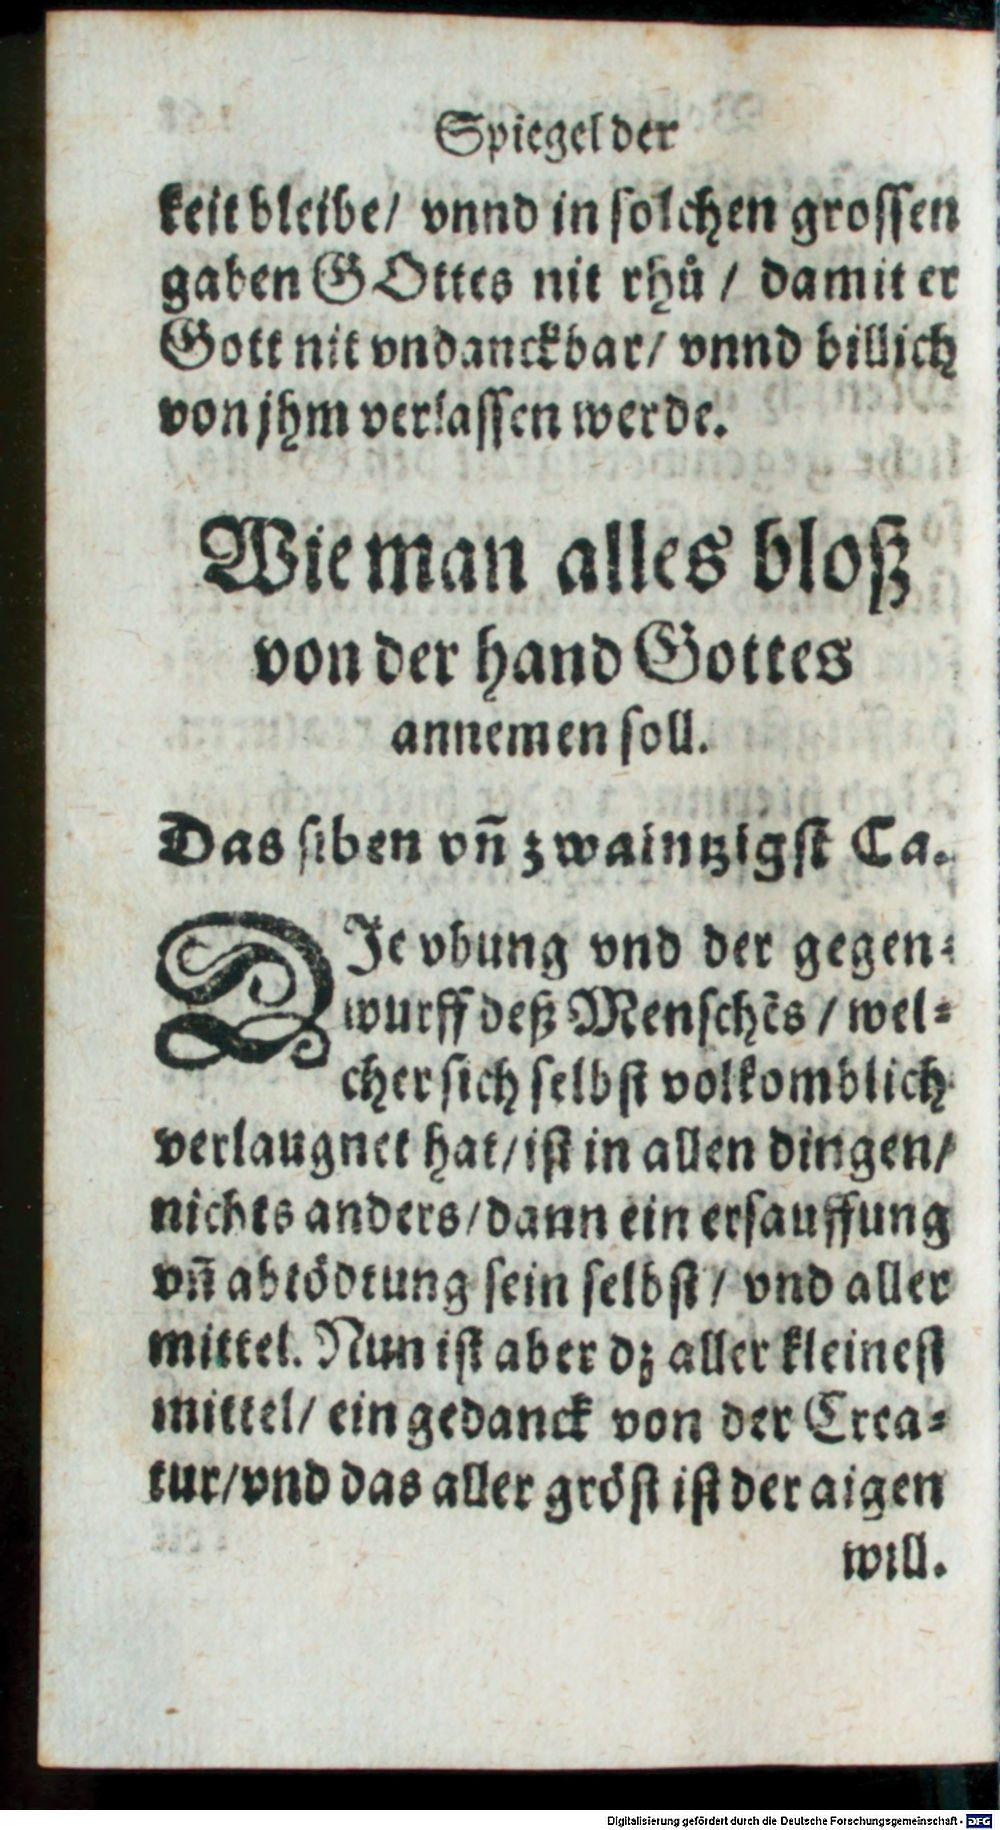 Spiegel der
keit bleibe/ vnnd in solchen grossen
gaben GOttes nit rhů / damit er
Gott nit vndanckbar/ vnnd billich
von jhm verlassen werde.
Wie man alles bloß
von der hand Gottes
annemen soll.
Das siben vñ zwaintzigst Ca.
DJe vbung vnd der gegen-
wurff deß Menschẽs / wel-
cher sich selbst volkomblich
verlaugnet hat/ ist in allen dingen/
nichts anders/ dann ein ersauffung
vñ abtödtung sein selbst/ vnd aller
mittel. Nun ist aber dz aller kleinest
mittel/ ein gedanck von der Crea-
tur/ vnd das aller gröst ist der aigen
will.
Digitalisierung gefördert durch die Deutsche Forschungsgemeinschaft - DFG